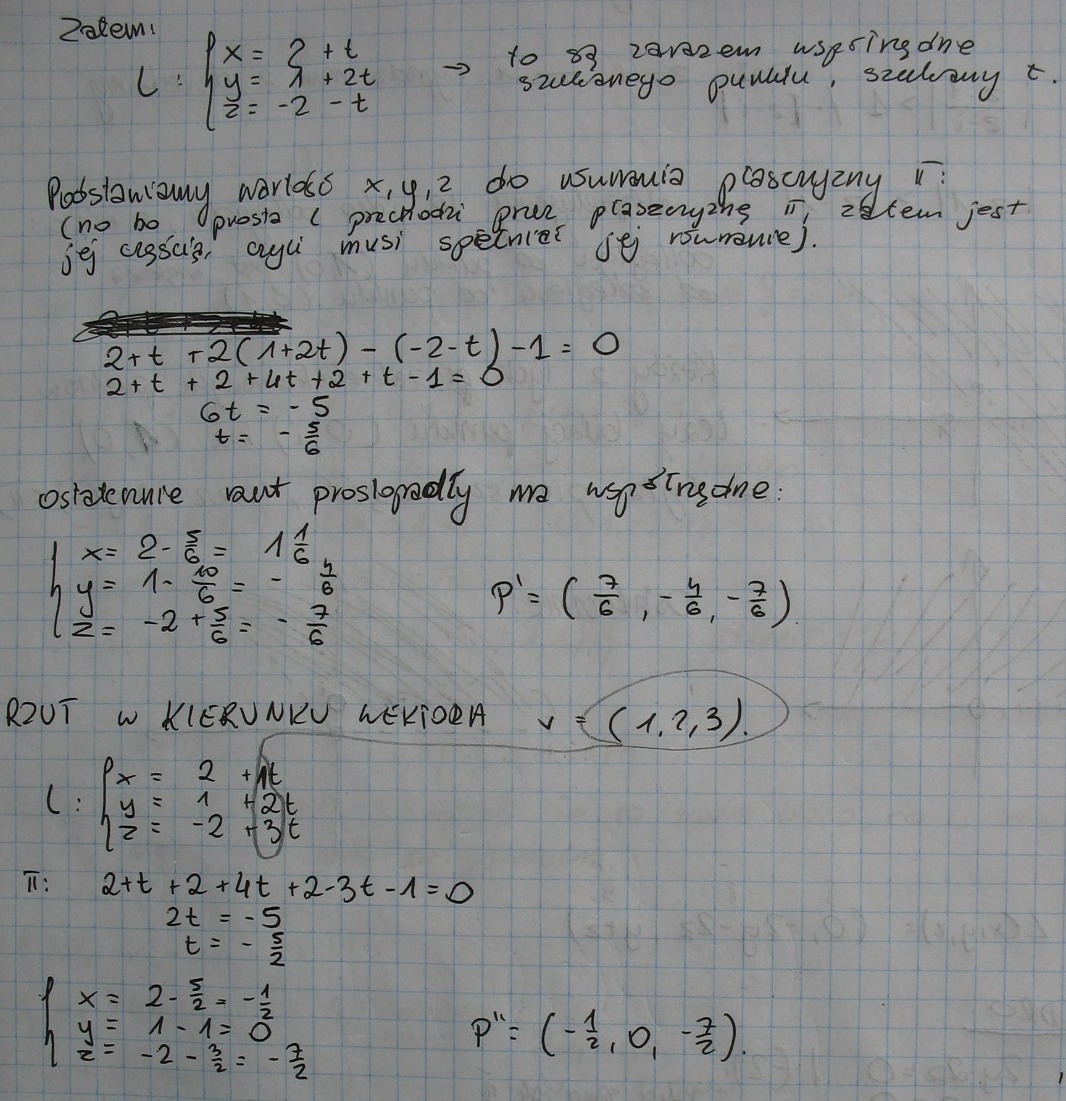 Zatem:
l : { x = 2 + t → to są zarazem współrzędne
y = 1 + 2t szukanego punktu, szukamy t.
z = -2 - t
Podstawiamy wartość x, y, z do równania płaszczyzny π:
(no bo prosta l przechodzi przez płaszczyznę π, zatem jest
jej częścią, czyli musi spełniać jej równanie).
2+t +2(1+2t) - (-2-t) -1 = 0
2+t + 2 +4t +2 + t -1 = 0
6t = -5
t = - 5/6
Ostatecznie rzut prostopadły ma współrzędne:
{ x = 2 - 5/6 = 1 1/6
y = 1 - 10/6 = - 4/6
z = -2 + 5/6 = - 7/6
P' = ( 7/6 , - 4/6 , - 7/6 ).
RZUT W KIERUNKU WEKTORA v = (1,2,3).
l : { x = 2 + 1t
y = 1 + 2t
z = -2 + 3t
π: 2+t +2 +4t +2-3t -1 = 0
2t = -5
t = - 5/2
{ x = 2 - 5/2 = - 1/2
y = 1 - 1 = 0
z = -2 - 3/2 = - 7/2
P" = ( - 1/2 , 0, - 7/2 ).